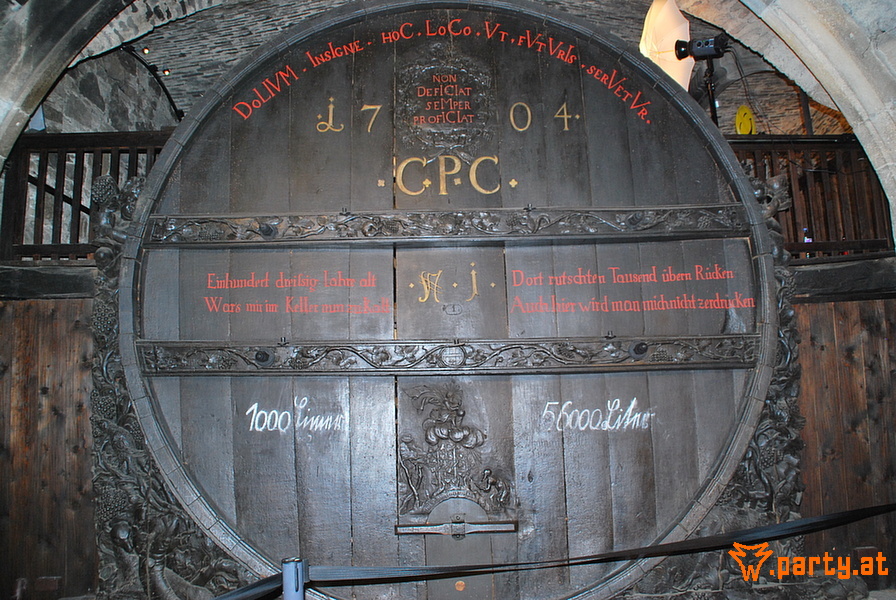 DoLIVM · InsIGne · hoC · LoCo · Vt · fVtVrIs · serVetVr.
NON
DefICIat
seMper
profICIat
1704.
C·P·C
Einhundert dreißig Jahr alt
Wars mir im Keller
Dort rutschten Tausend übern Rücken
Auch hier wird man mich nicht zerdrucken
1000 Eimer
56000 Liter
w.party.at